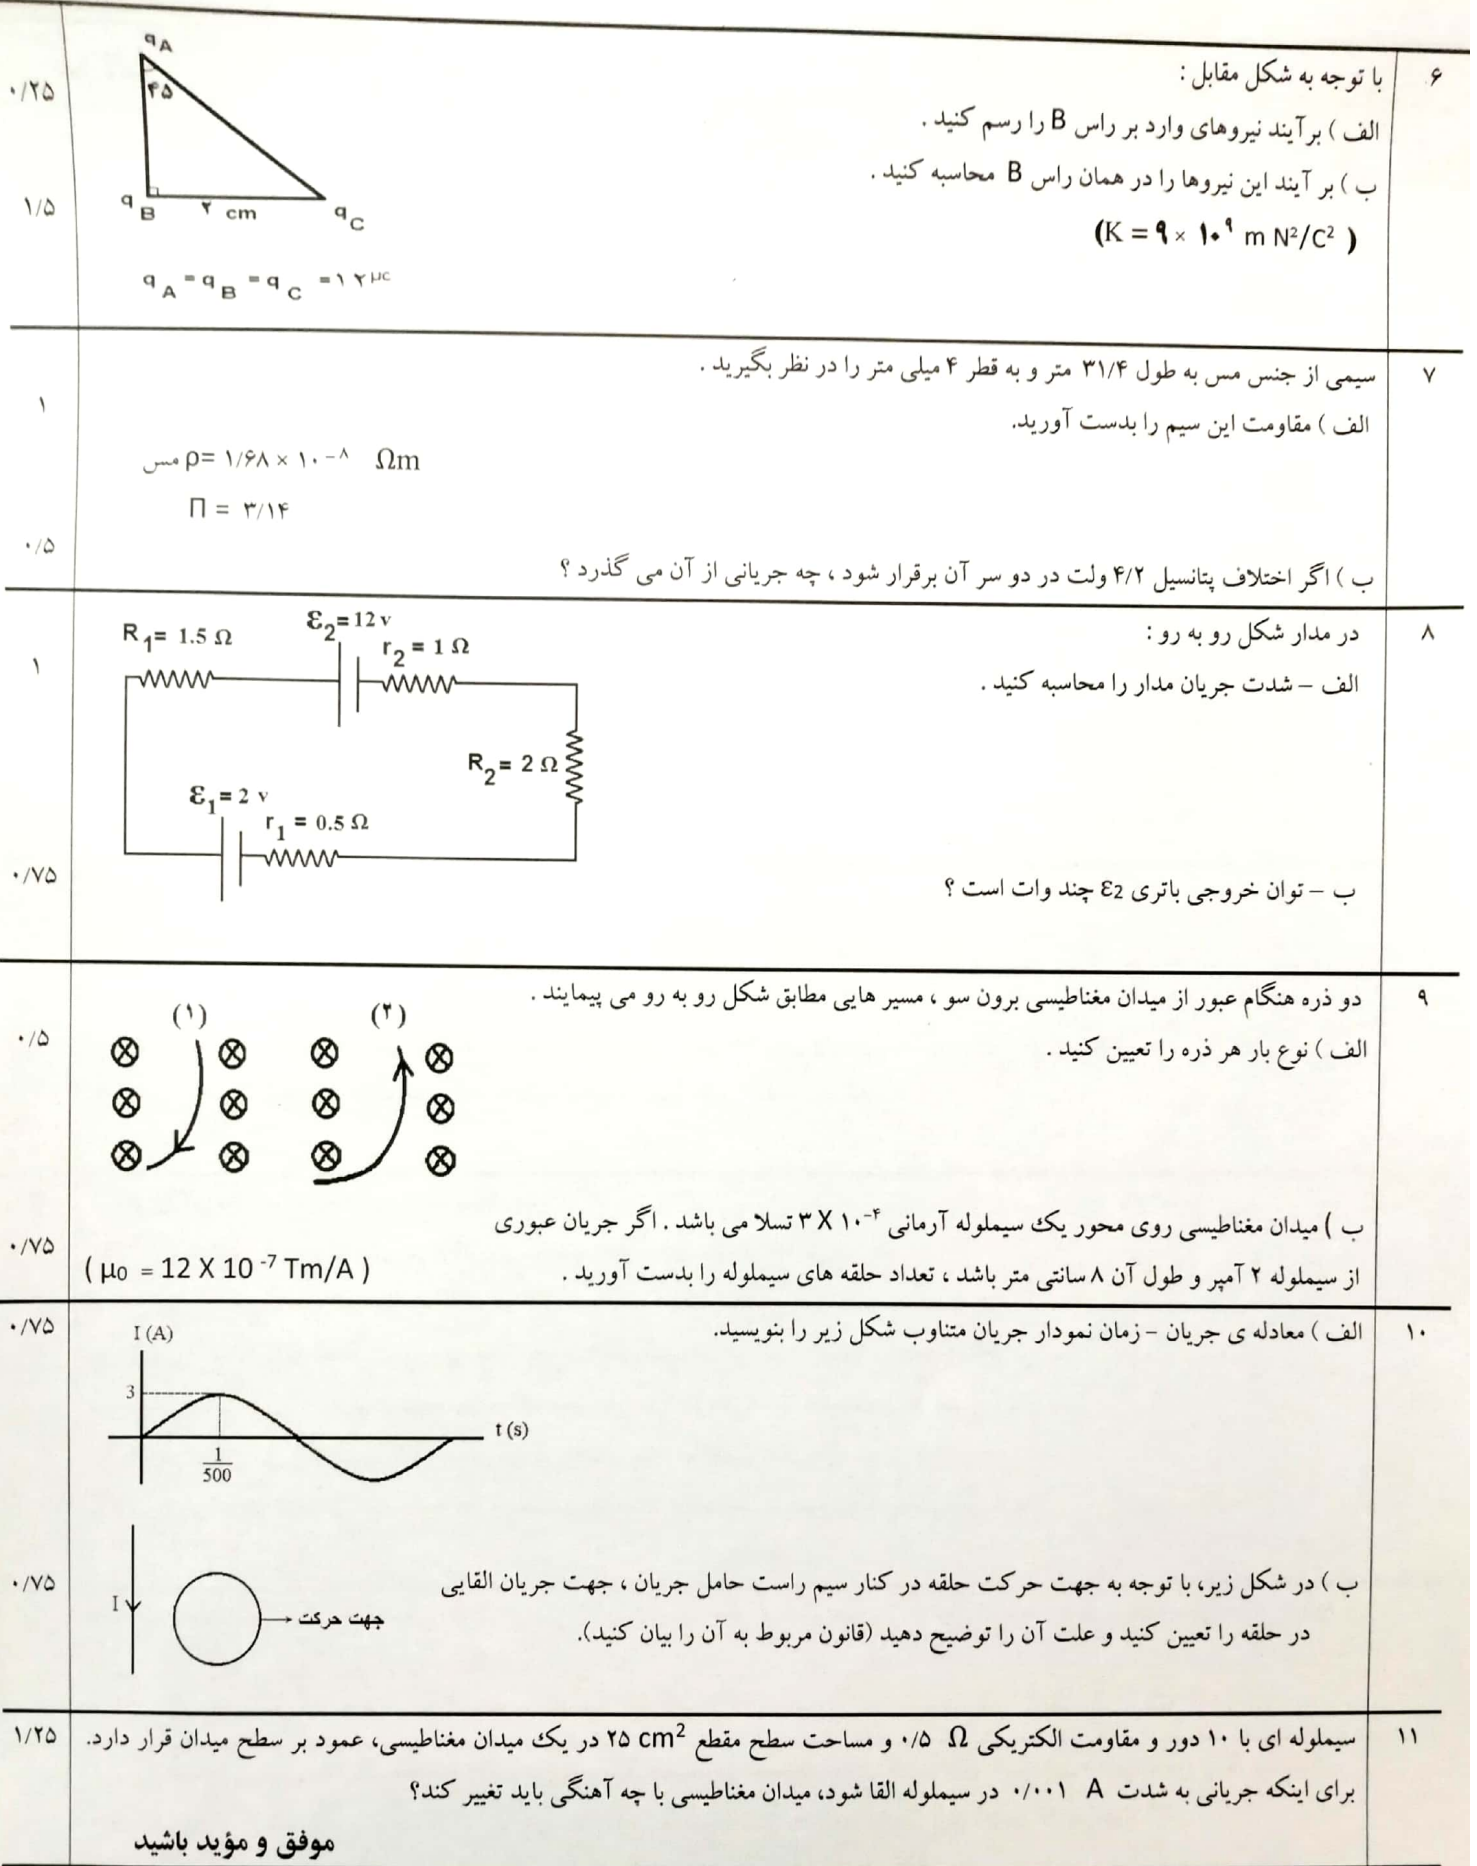 ۶
با توجه به شکل مقابل :
۰/۲۵
الف ) برآیند نیروهای وارد بر راس B را رسم کنید .
ب ) بر آیند این نیروها را در همان راس B محاسبه کنید .
۱/۵
(K = ۹ × ۱۰^۹ m N²/C² )
q A
۴۵
q B
۲ cm
q C
q A = q B = q C = ۱۲ μc
۷
سیمی از جنس مس به طول ۳۱/۴ متر و به قطر ۴ میلی متر را در نظر بگیرید .
الف ) مقاومت این سیم را بدست آورید.
۱
ρ = ۱/۶۸ × ۱۰^-۸ Ωm مس
Π = ۳/۱۴
ب ) اگر اختلاف پتانسیل ۴/۲ ولت در دو سر آن برقرار شود ، چه جریانی از آن می گذرد ؟
۰/۵
۸
در مدار شکل رو به رو :
الف – شدت جریان مدار را محاسبه کنید .
۱
R1 = 1.5 Ω
ε2 = 12 v
r2 = 1 Ω
R2 = 2 Ω
ε1 = 2 v
r1 = 0.5 Ω
ب – توان خروجی باتری ε2 چند وات است ؟
۰/۷۵
۹
دو ذره هنگام عبور از میدان مغناطیسی برون سو ، مسیر هایی مطابق شکل رو به رو می پیمایند .
الف ) نوع بار هر ذره را تعیین کنید .
۰/۵
(۱)
(۲)
ب ) میدان مغناطیسی روی محور یک سیملوله آرمانی ۳ X ۱۰^-۴ تسلا می باشد . اگر جریان عبوری
از سیملوله ۲ آمپر و طول آن ۸ سانتی متر باشد ، تعداد حلقه های سیملوله را بدست آورید .
( μ0 = 12 X 10^-7 Tm/A )
۰/۷۵
۱۰
الف ) معادله ی جریان – زمان نمودار جریان متناوب شکل زیر را بنویسید.
۰/۷۵
I (A)
3
1/500
t (s)
ب ) در شکل زیر، با توجه به جهت حرکت حلقه در کنار سیم راست حامل جریان ، جهت جریان القایی
در حلقه را تعیین کنید و علت آن را توضیح دهید (قانون مربوط به آن را بیان کنید).
۰/۷۵
I
جهت حرکت
۱۱
سیملوله ای با ۱۰ دور و مقاومت الکتریکی ۰/۵ Ω و مساحت سطح مقطع ۲۵ cm² در یک میدان مغناطیسی، عمود بر سطح میدان قرار دارد.
برای اینکه جریانی به شدت ۰/۰۰۱ A در سیملوله القا شود، میدان مغناطیسی با چه آهنگی باید تغییر کند؟
۱/۲۵
موفق و مؤید باشید